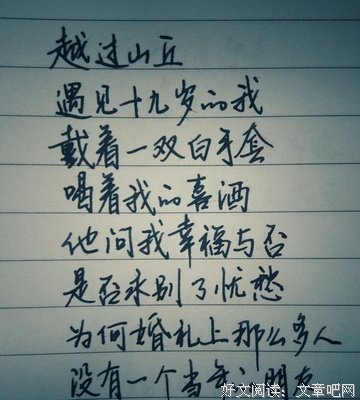 越过山丘
遇见十九岁的我
戴着一双白手套
喝着我的喜酒
他问我幸福与否
是否永别了忧愁
为何婚礼上那么多人
没有一个当年的朋友
好文阅读：文章吧网